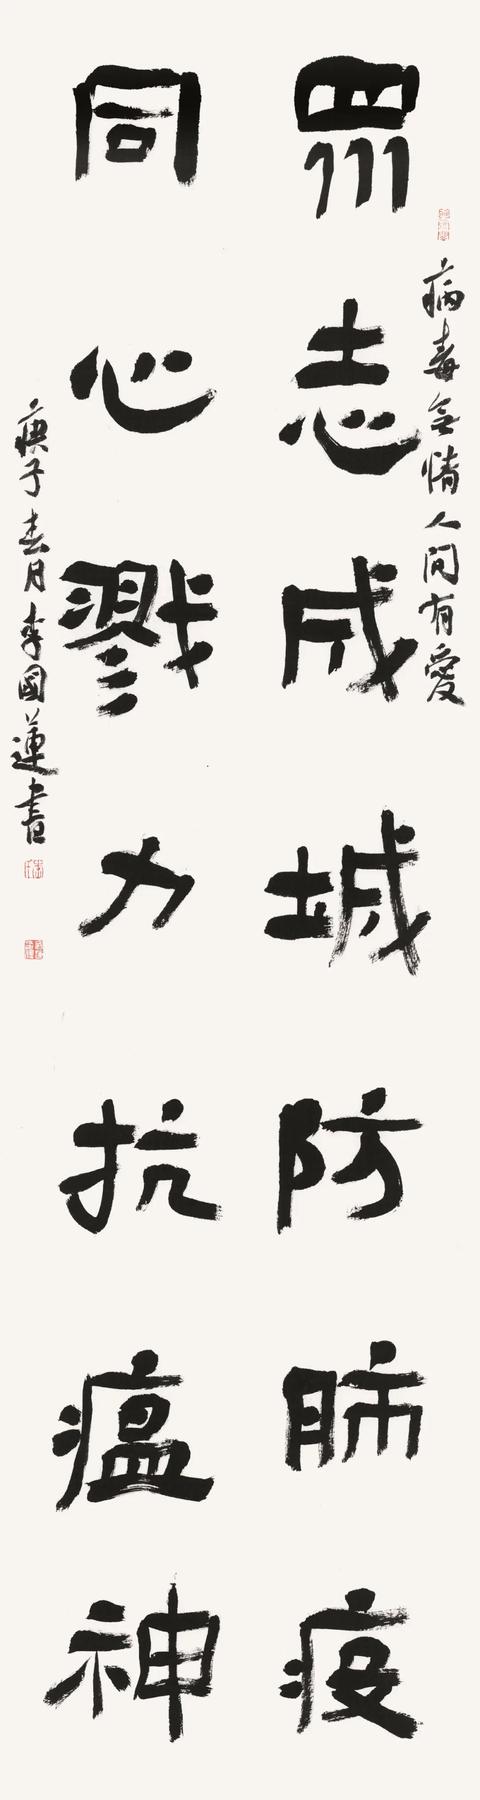 病毒無情人間有愛
眾志成城防肺疫
同心戮力抗瘟神
庚子春月李國蓮書